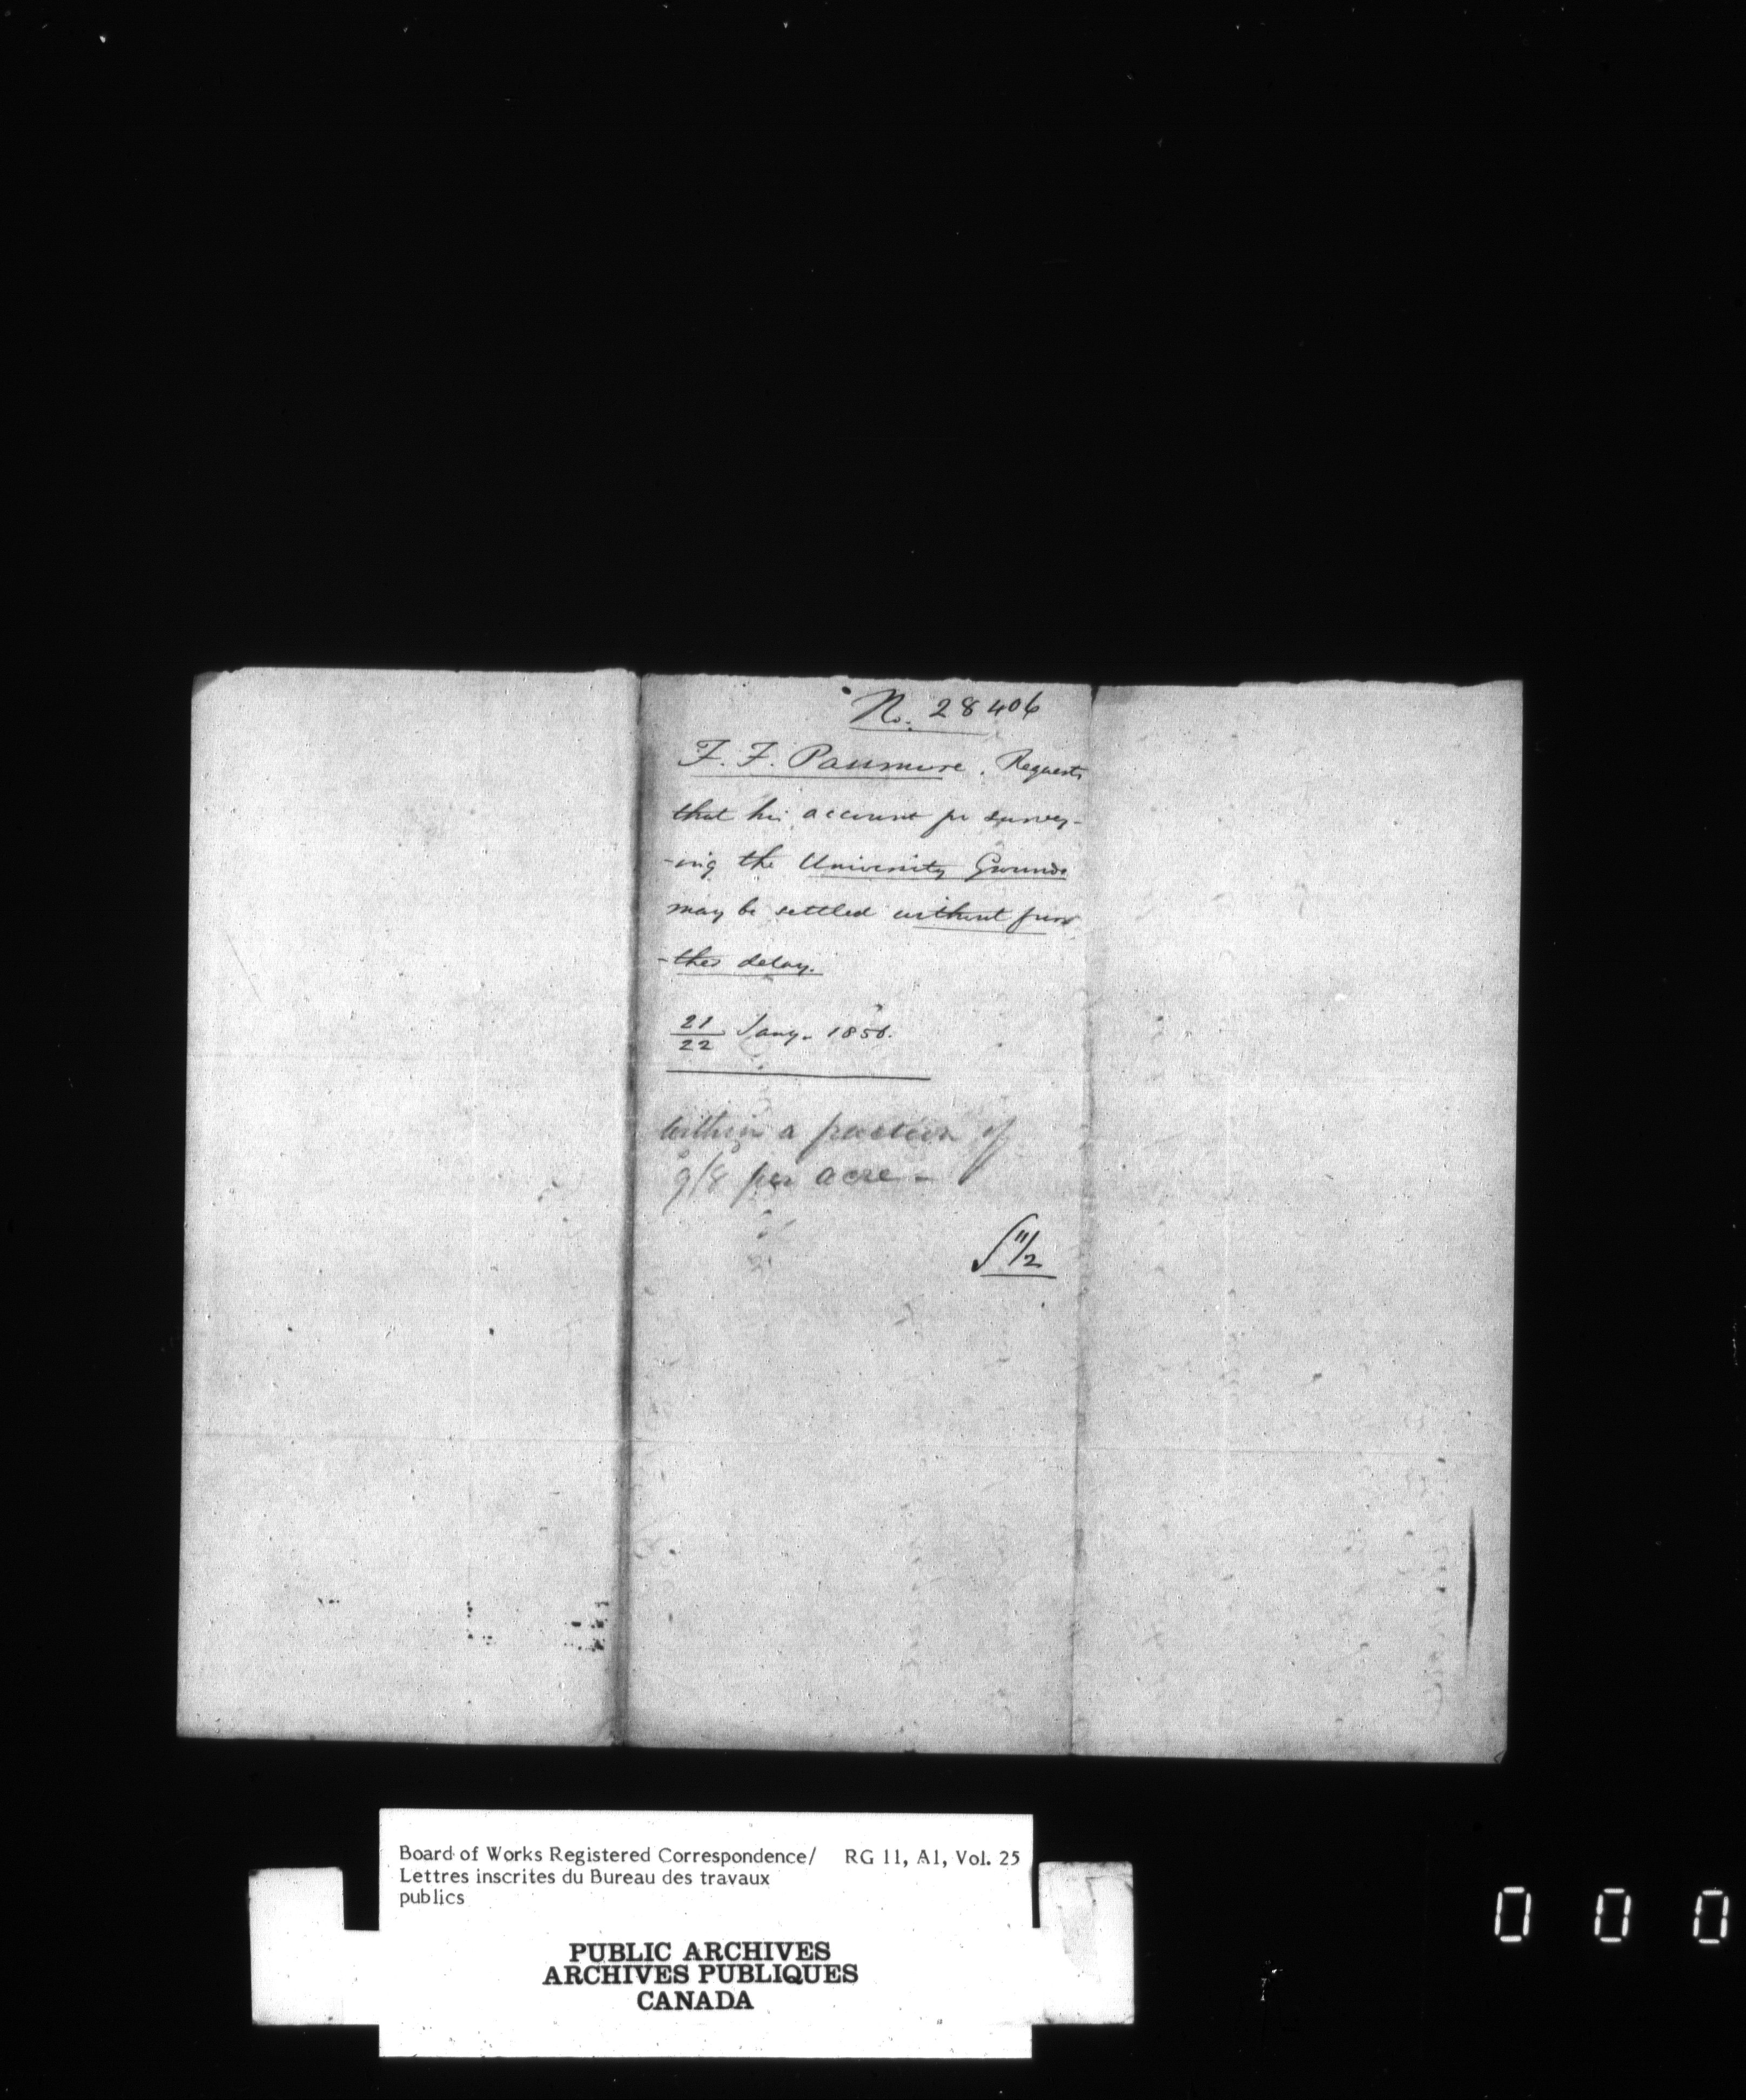 No. 28406
F. F. Passmore. Requests
that his account for survey-
-ing the University Grounds
may be settled without fur
-ther delay.
21/22 Jany. 1856.
within a fraction of
9/8 per acre -
11/2
Board of Works Registered Correspondence/ RG 11, A1, Vol. 25
Lettres inscrites du Bureau des travaux
publics
PUBLIC ARCHIVES
ARCHIVES PUBLIQUES
CANADA
0 0 0